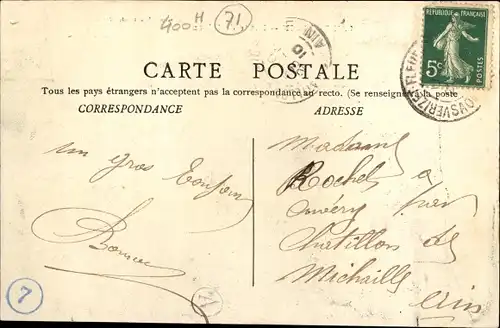 400 H
71
RÉPUBLIQUE FRANÇAISE
5c
POSTES
AIN
CARTE POSTALE
Tous les pays étrangers n'acceptent pas la correspondance au recto. (Se renseigner à la poste
CORRESPONDANCE
ADRESSE
un gros bonjour
Madame
Rochet à
par
Châtillon de
Michaille
Ain
7